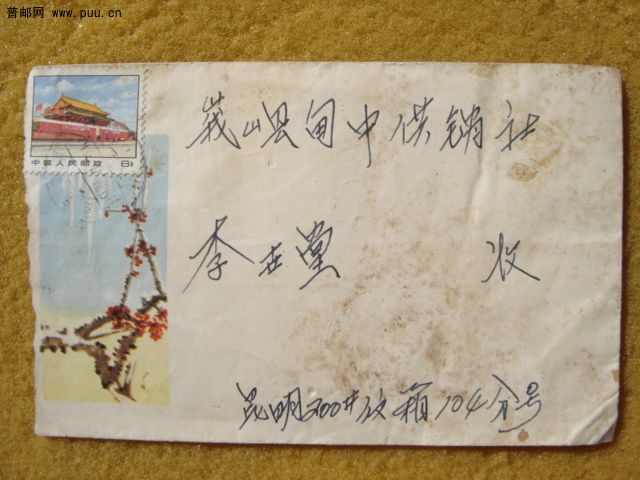 普邮网 www.puu.cn
中国人民邮政 8分
峨山县甸中供销社
李在堂 收
昆明300#信箱104分号